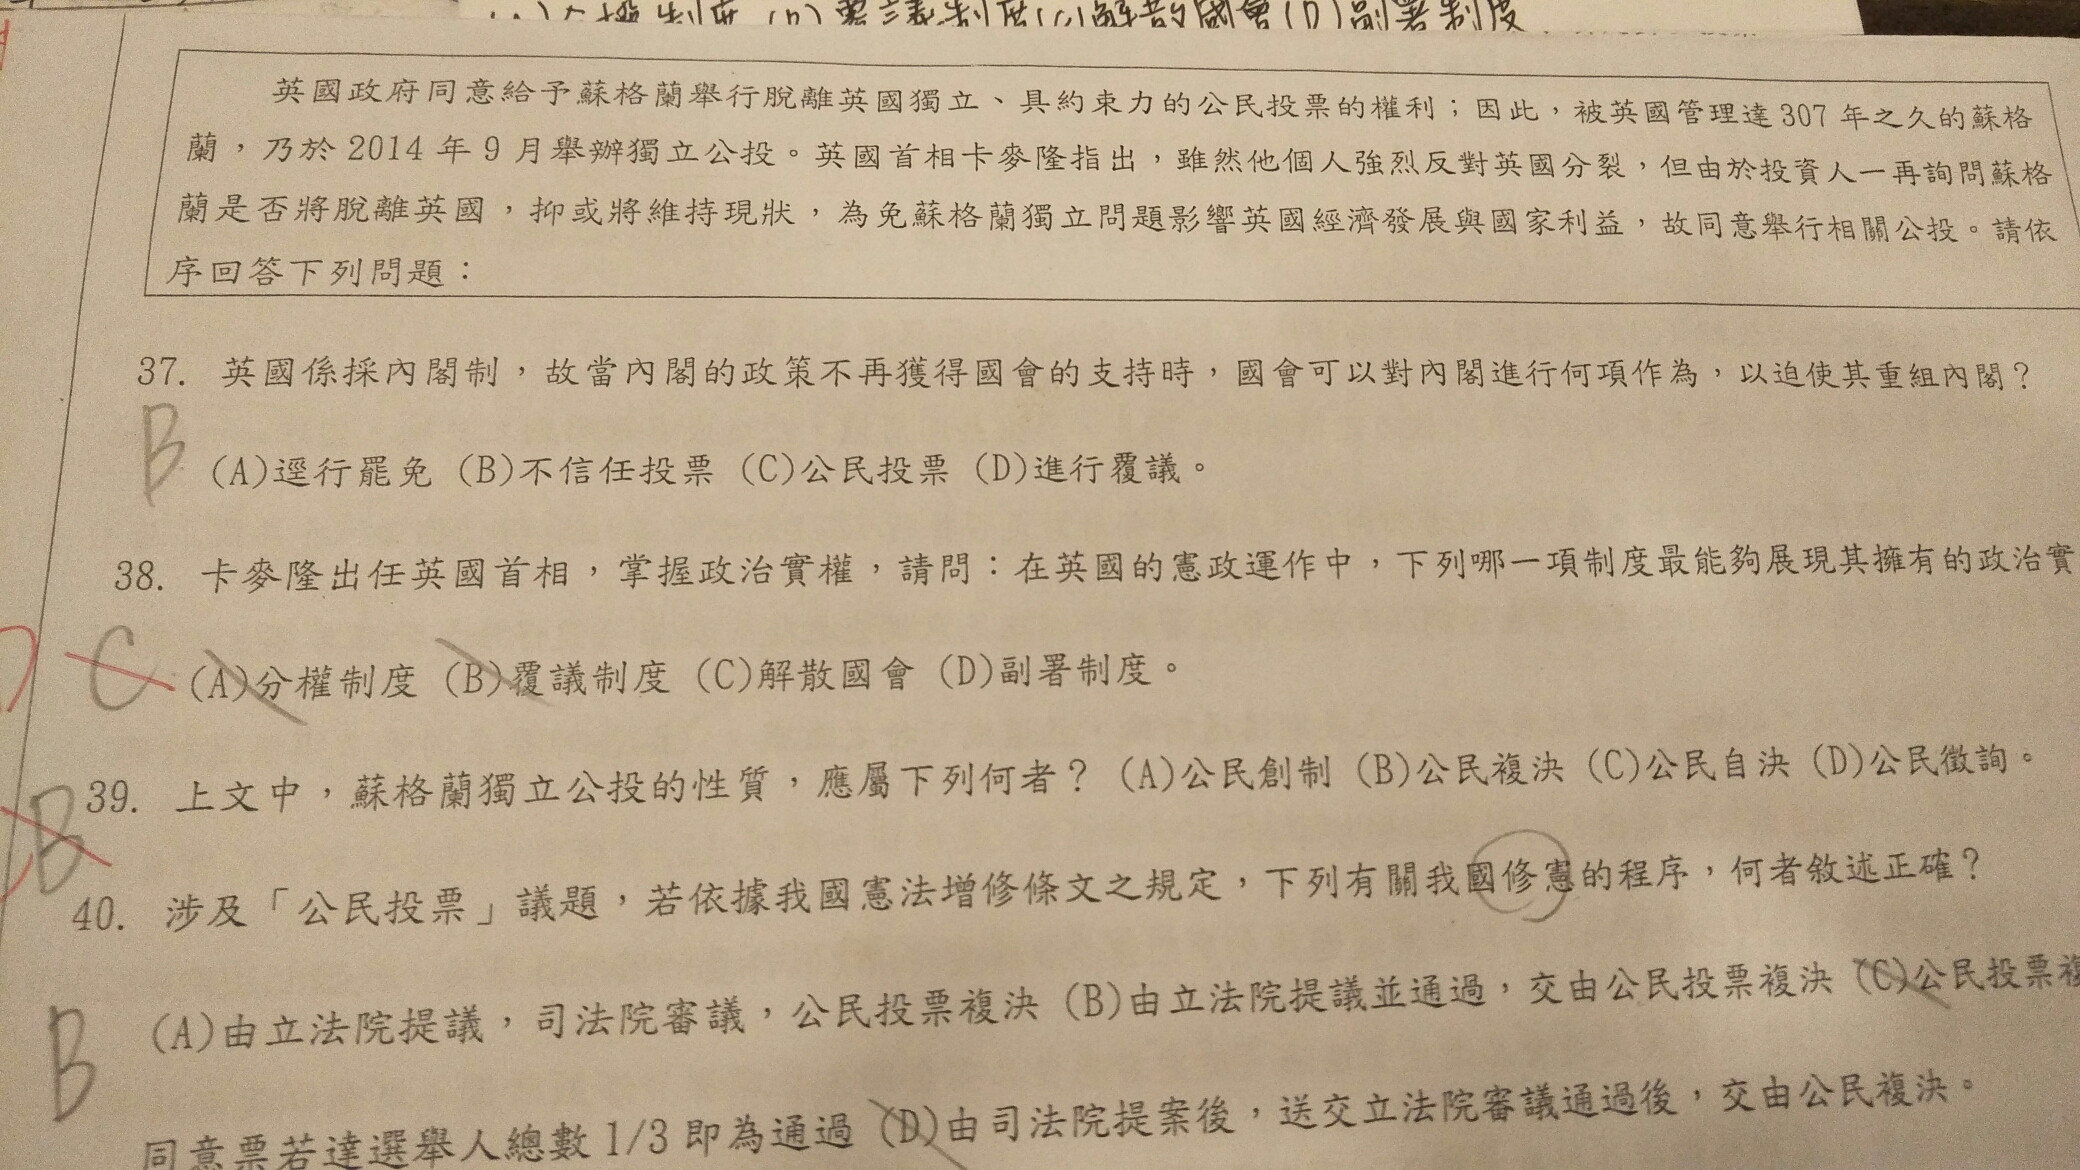 制度(C)解散國會(D)副署制度
英國政府同意給予蘇格蘭舉行脫離英國獨立、具約束力的公民投票的權利；因此，被英國管理達307年之久的蘇格
蘭，乃於2014年9月舉辦獨立公投。英國首相卡麥隆指出，雖然他個人強烈反對英國分裂，但由於投資人一再詢問蘇格
蘭是否將脫離英國，抑或將維持現狀，為免蘇格蘭獨立問題影響英國經濟發展與國家利益，故同意舉行相關公投。請依
序回答下列問題：
37. 英國係採內閣制，故當內閣的政策不再獲得國會的支持時，國會可以對內閣進行何項作為，以迫使其重組內閣？
B
(A)逕行罷免 (B)不信任投票 (C)公民投票 (D)進行覆議。
38. 卡麥隆出任英國首相，掌握政治實權，請問：在英國的憲政運作中，下列哪一項制度最能夠展現其擁有的政治實
C
(A)分權制度 (B)覆議制度 (C)解散國會 (D)副署制度。
B
39. 上文中，蘇格蘭獨立公投的性質，應屬下列何者？ (A)公民創制 (B)公民複決 (C)公民自決 (D)公民徵詢。
40. 涉及「公民投票」議題，若依據我國憲法增修條文之規定，下列有關我國修憲的程序，何者敘述正確？
B
(A)由立法院提議，司法院審議，公民投票複決 (B)由立法院提議並通過，交由公民投票複決 (C)公民投票複
同意票若達選舉人總數1/3即為通過 (D)由司法院提案後，送交立法院審議通過後，交由公民複決。